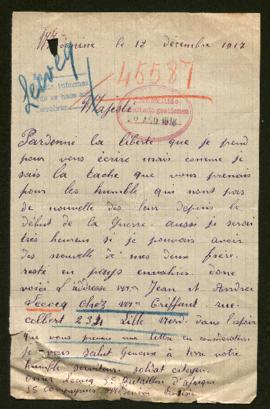 le 12 décembre 1917
Lecocq
45587
Majesté
Pardonné la liberté que je prend
pour vous écrire mais comme je
sais la tache que vous prenais
pour les humble qui nont pas
de nouvelle des leur depuis le
début de la Guerre aussi je serai
très heureux si je pouvais avoir
des nouvelle de mes deux frère
resté en pays envahier dont
voici l'adresse Jean et André
Lecocq chez Creffant rue
colbert 234 Lille Nord. dans l'espoir
que vous prenner ma lettre en considération
je vous salut Genoux à terre votre
humble serviteur soldat citoyen
Lecocq Bataillon d'afrique